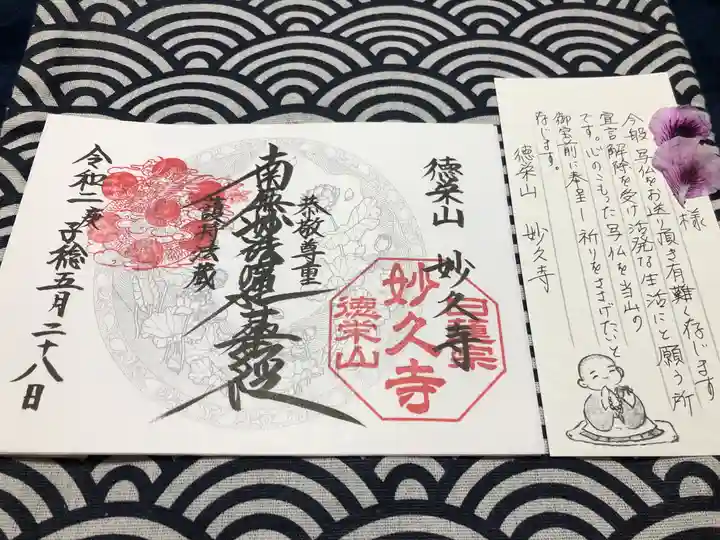 徳栄山 妙久寺
恭敬尊重
南無妙法蓮華経
護持法蔵
令和二庚子稔五月二十八日
日蓮宗
妙久寺
徳栄山
様
今般 写仏をお送り頂き有難く存じます
宣言解除を受け 活発な生活にと願う所
です。心のこもった写仏を当山の
御宝前に奉呈し祈りをささげたいと
存じます。
徳栄山 妙久寺